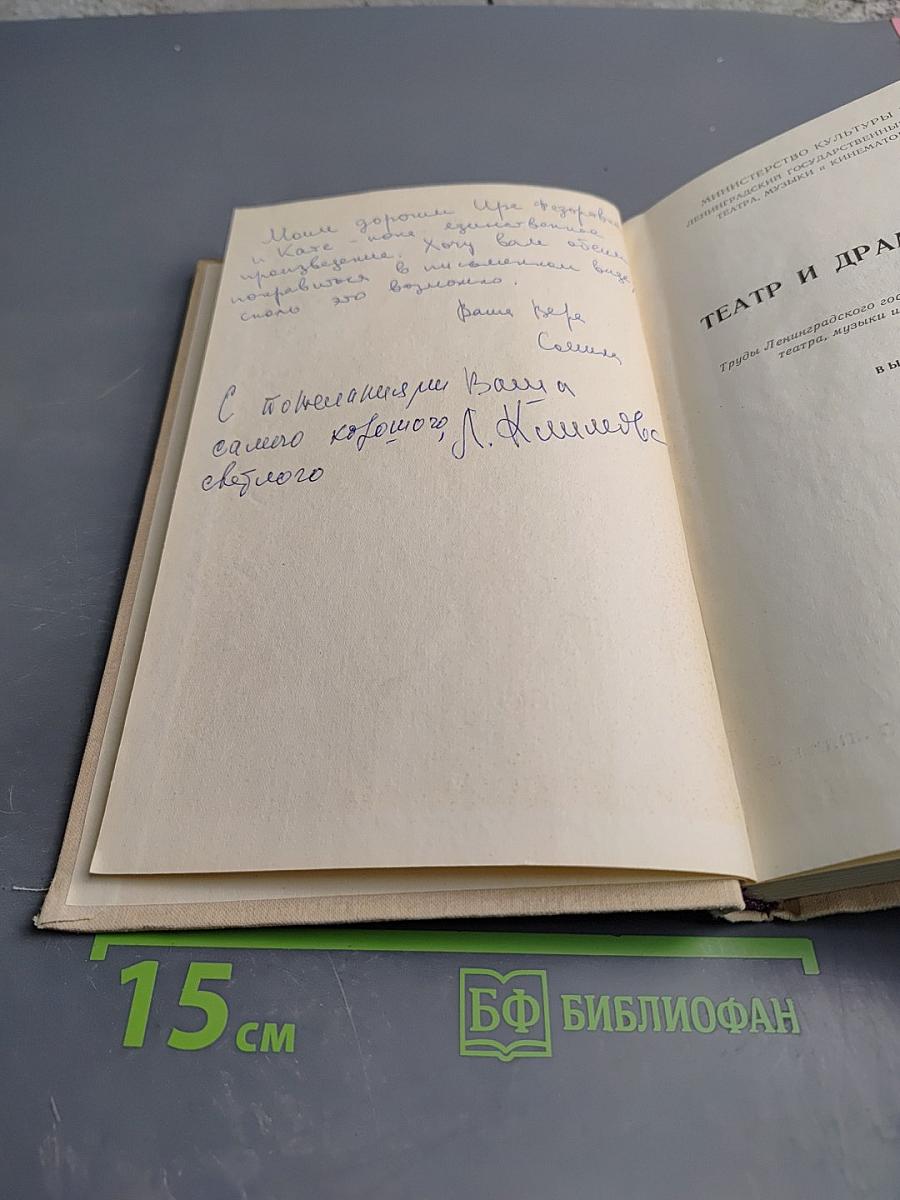 Моим дорогим Ире Федоровне
и Кате – пока единственное
произведение. Хочу вам обеим
понравиться в письменном виде,
сколь это возможно.
Ваша Вера
Сомина
С пожеланиями Ваша
самого хорошего, Л. Климова
светлого
МИНИСТЕРСТВО КУЛЬТУРЫ
ЛЕНИНГРАДСКИЙ ГОСУДАРСТВЕННЫЙ
ТЕАТРА, МУЗЫКИ и КИНЕМАТО
ТЕАТР И ДРАМ
Труды Ленинградского гос
театра, музыки и
ВЫ
15 см
БФ БИБЛИОФАН